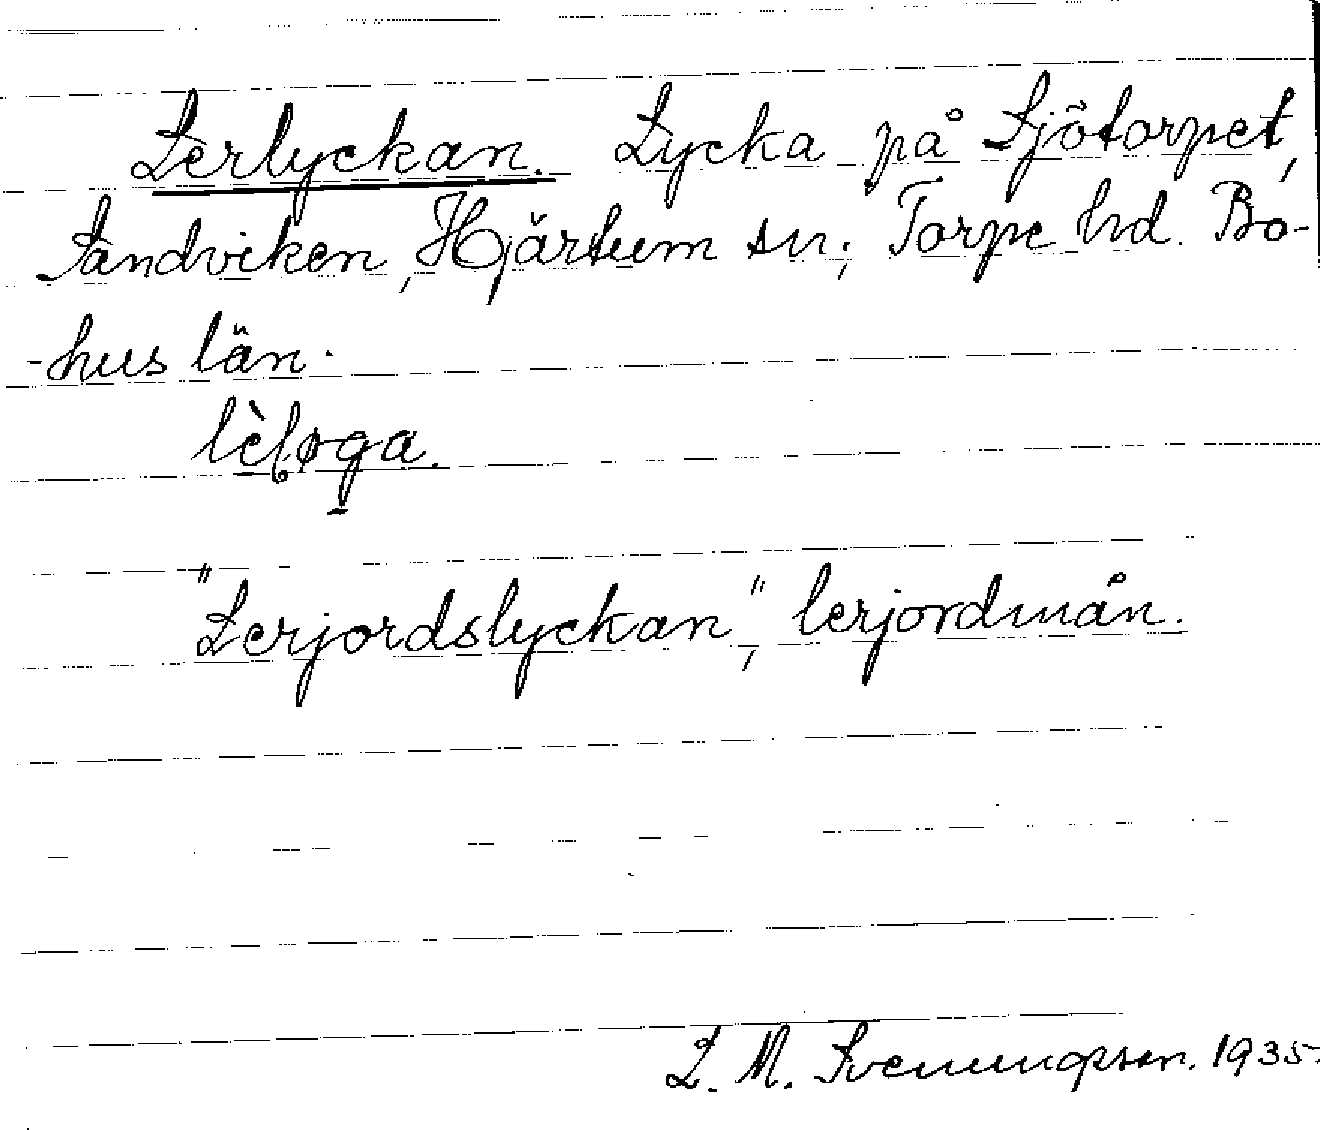 Lerlyckan. Lycka på Sjötorpet,
Sandviken, Hjärtum sn; Torpe hd. Bo-
-hus län.
"Lerjordslyckan", lerjordmån.
L. M. Svenungsson. 1935.